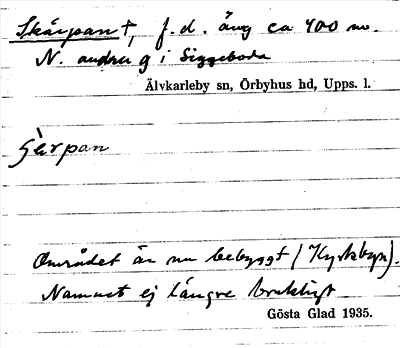 Skärpan †, f.d. äng ca 400 m.
N. andra g i Siggeboda
Älvkarleby sn, Örbyhus hd, Upps. l.
Området är nu bebyggt (Kyrkbyn).
Namnet ej längre brukligt
Gösta Glad 1935.